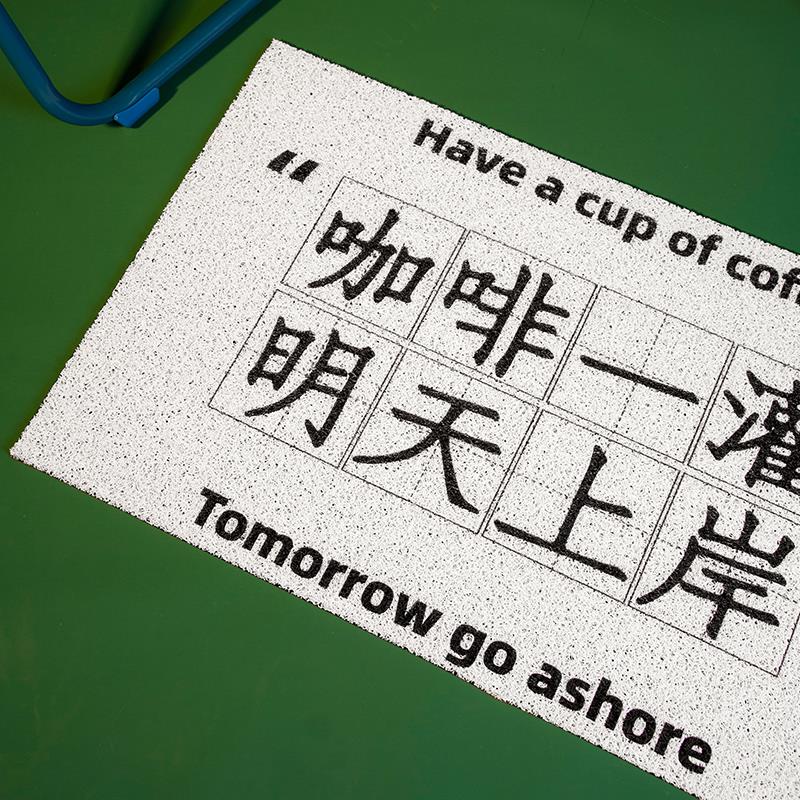 Have a cup of coff
“
咖啡一灌
明天上岸
Tomorrow go ashore